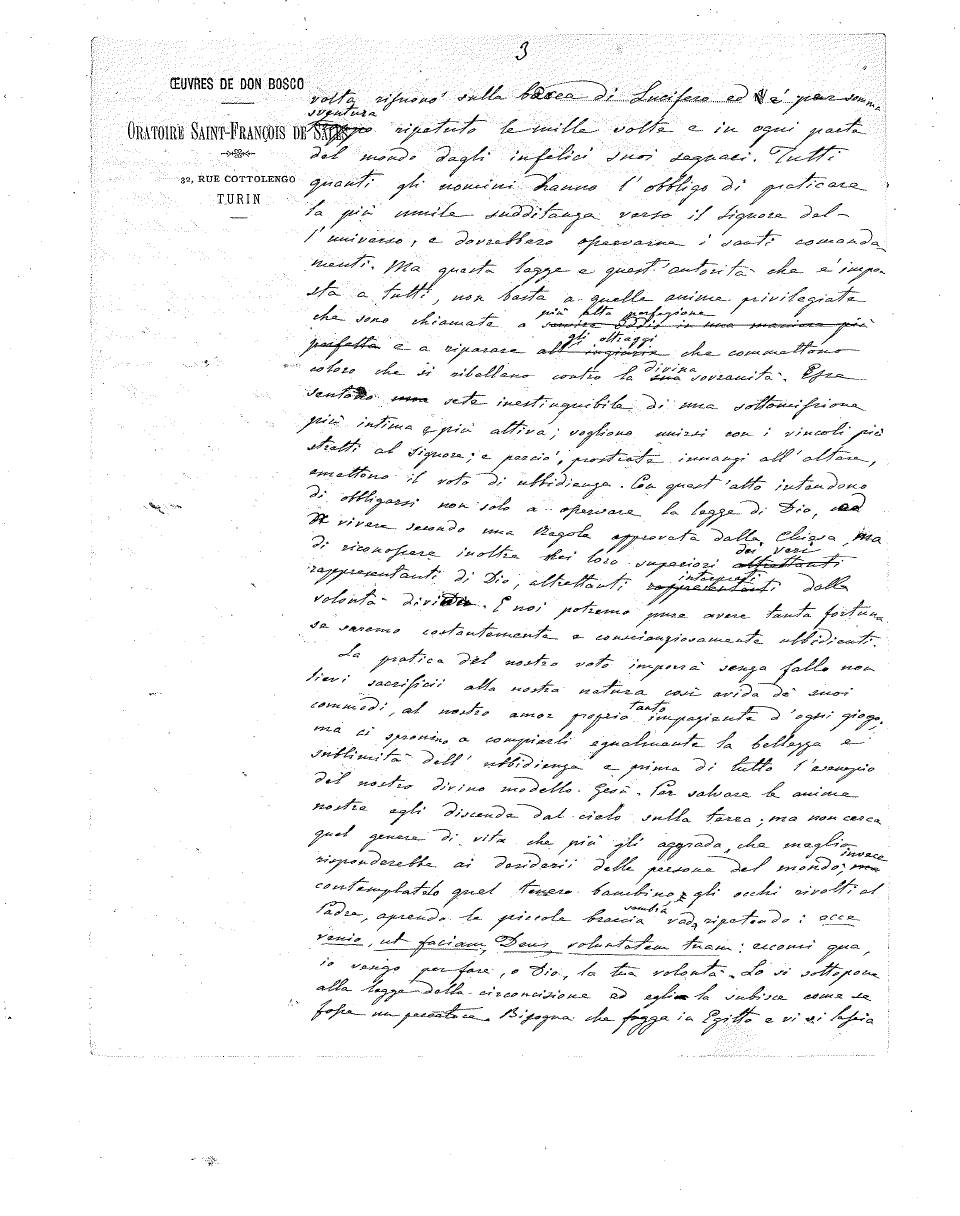 3
ŒUVRES DE DON BOSCO
ORATOIRE SAINT-FRANÇOIS DE SALES
32, RUE COTTOLENGO
TURIN
volta risuonò sulla bocca di Lucifero ed è per somma
sventura
ripetuto le mille volte e in ogni parte
del mondo dagli infelici suoi seguaci. Tutti
quanti gli uomini hanno l'obbligo di praticare
la più umile sudditanza verso il Signore del-
l'universo, e dovrebbero osservarne i santi comanda
menti. Ma questa legge e quest'autorità che è impo-
sta a tutti, non basta a quelle anime privilegiate
più alta perfezione
che sono chiamate a servire Iddio in una maniera più
gli oltraggi
perfetta e a riparare all' ingiuria che commettono
divina
coloro che si ribellano contro la sua sovranità. Esse
sentono una sete inestinguibile di una sottomissione
più intima e più attiva; vogliono unirsi con i vincoli più
stretti al Signore; e perciò, prostrate innanzi all'altare,
emettono il voto di ubbidienza. Con quest'atto intendono
di obbligarsi non solo a osservare la legge di Dio, ed
a vivere secondo una Regola approvata dalla Chiesa, ma
dei veri
di riconoscere inoltre nei loro superiori altrettanti
interpreti
rappresentanti di Dio, altrettanti rappresentanti della
volontà divina. E noi potremo pure avere tanta fortuna
se saremo costantemente e conscienziosamente ubbidienti.
La pratica del nostro voto imporrà senza fallo non
lievi sacrificii alla nostra natura così avida de' suoi
tanto
commodi, al nostro amor proprio impaziente d'ogni giogo,
ma ci spronino a compierli egualmente la bellezza e
sublimità dell' ubbidienza e prima di tutto l'esempio
del nostro divino modello Gesù. Per salvare le anime
nostre egli discende dal cielo sulla terra; ma non cerca
quel genere di vita che più gli aggrada, che meglio
invece
risponderebbe ai desiderii delle persone del mondo; ma
contemplatelo quel tenero bambino, gli occhi rivolti al
sembra
Padre, aprendo le piccole braccia vada ripetendo: ecce
venio, ut faciam, Deus, voluntatem tuam: eccomi qua,
io vengo per fare, o Dio, la tua volontà. Lo si sottopone
alla legge della circoncisione ed egli la subisce come se
fosse un peccatore. Bisogna che fugga in Egitto e vi si lascia